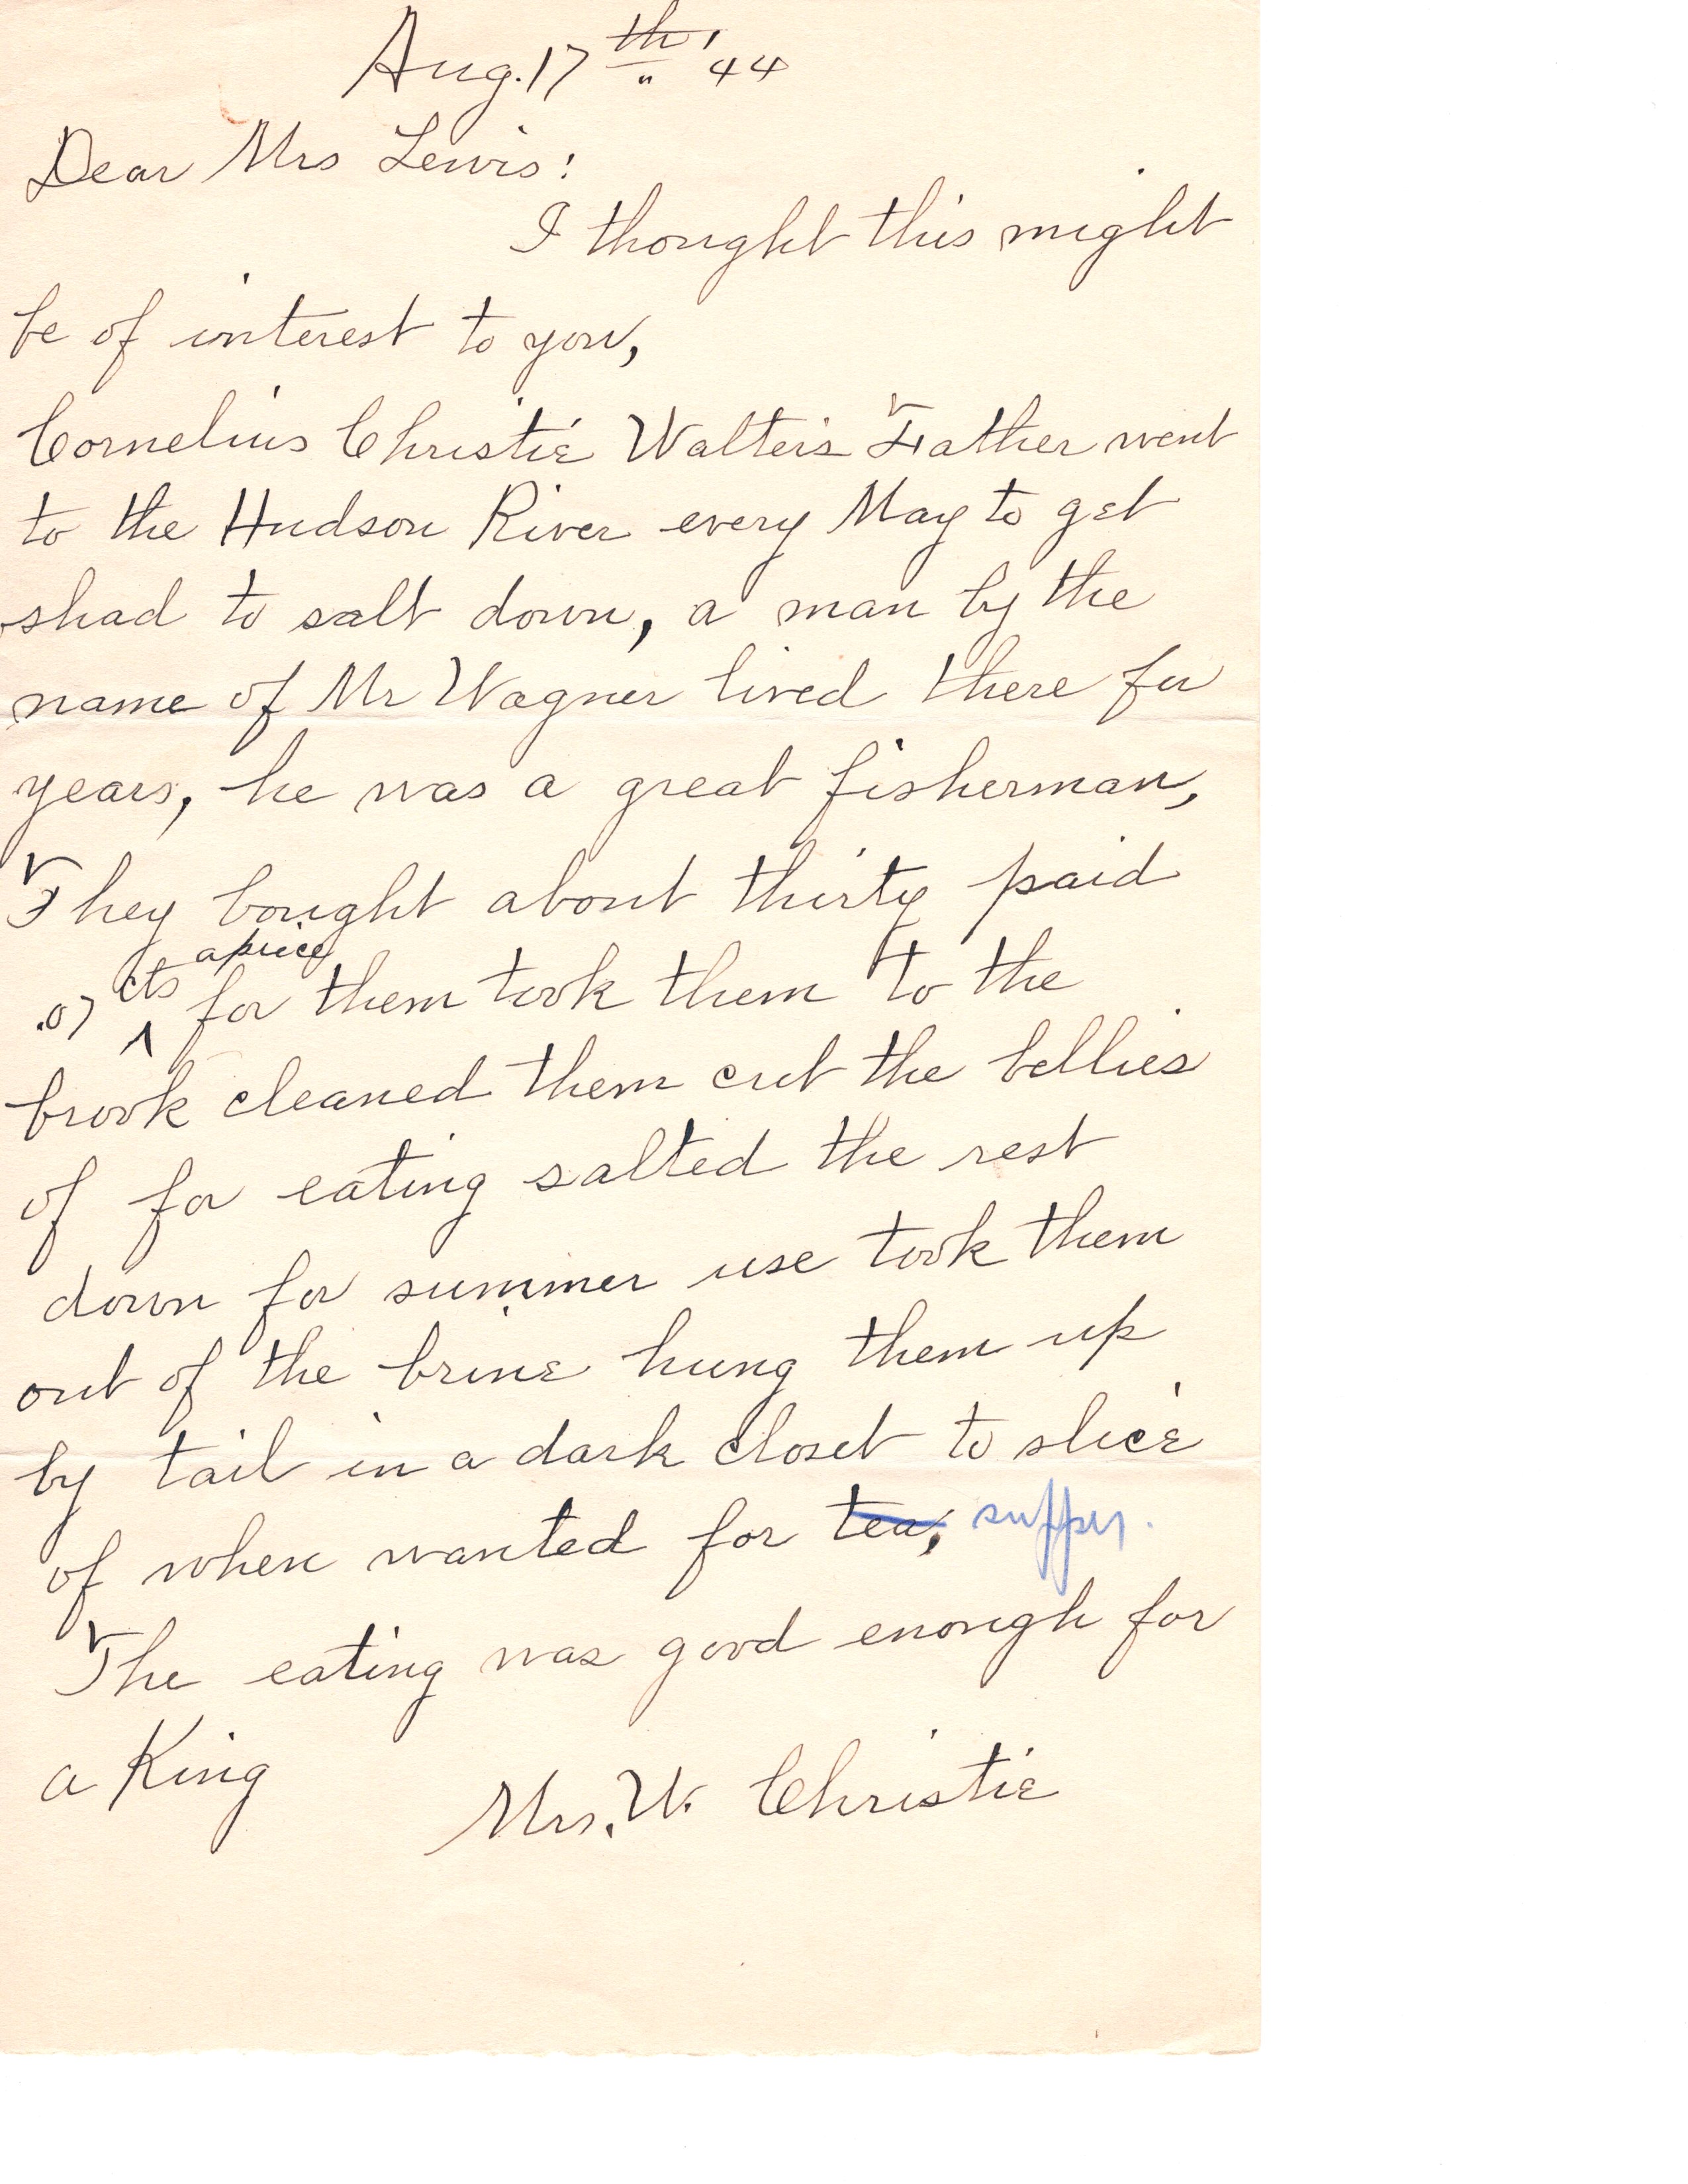 Aug. 17th '44
Dear Mrs Lewis:
I thought this might
be of interest to you,
Cornelius Christie Walter's Father went
to the Hudson River every May to get
shad to salt down, a man by the
name of Mr Wagner lived there for
years, he was a great fisherman,
They bought about thirty paid
apiece
.07 cts for them took them to the
brook cleaned them cut the bellies
of for eating salted the rest
down for summer use took them
out of the brine hung them up
by tail in a dark closet to slice
of when wanted for tea, supper.
The eating was good enough for
a King
Mrs. W. Christie